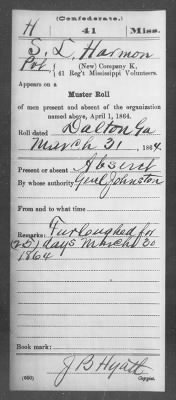 (Confederate.)
H 41 Miss.
S. L. Harmon
Pvt, (New) Company K,
41 Reg't Mississippi Volunteers.
Appears on a
Muster Roll
of men present and absent of the organization
named above, April 1, 1864.
Roll dated Dalton Ga
March 31, 1864.
Present or absent Absent
By whose authority Genl Johnston
From and to what time
Remarks: Furloughed for
(25) days March 30
1864
Book mark:
J B Hyatt
(650) Copyist.